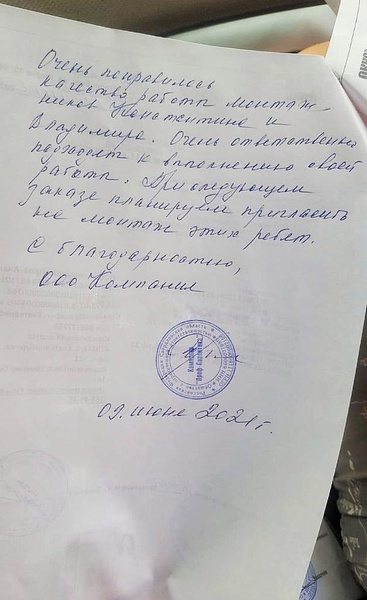 Очень понравилось
качество работы монтаж-
ников Константина и
Владимира. Очень ответственно
подходят к выполнению своей
работы. При следующем
заказе планируем пригласить
на монтаж этих ребят.
С благодарностью,
ООО Компания
09. июня 2021 г.